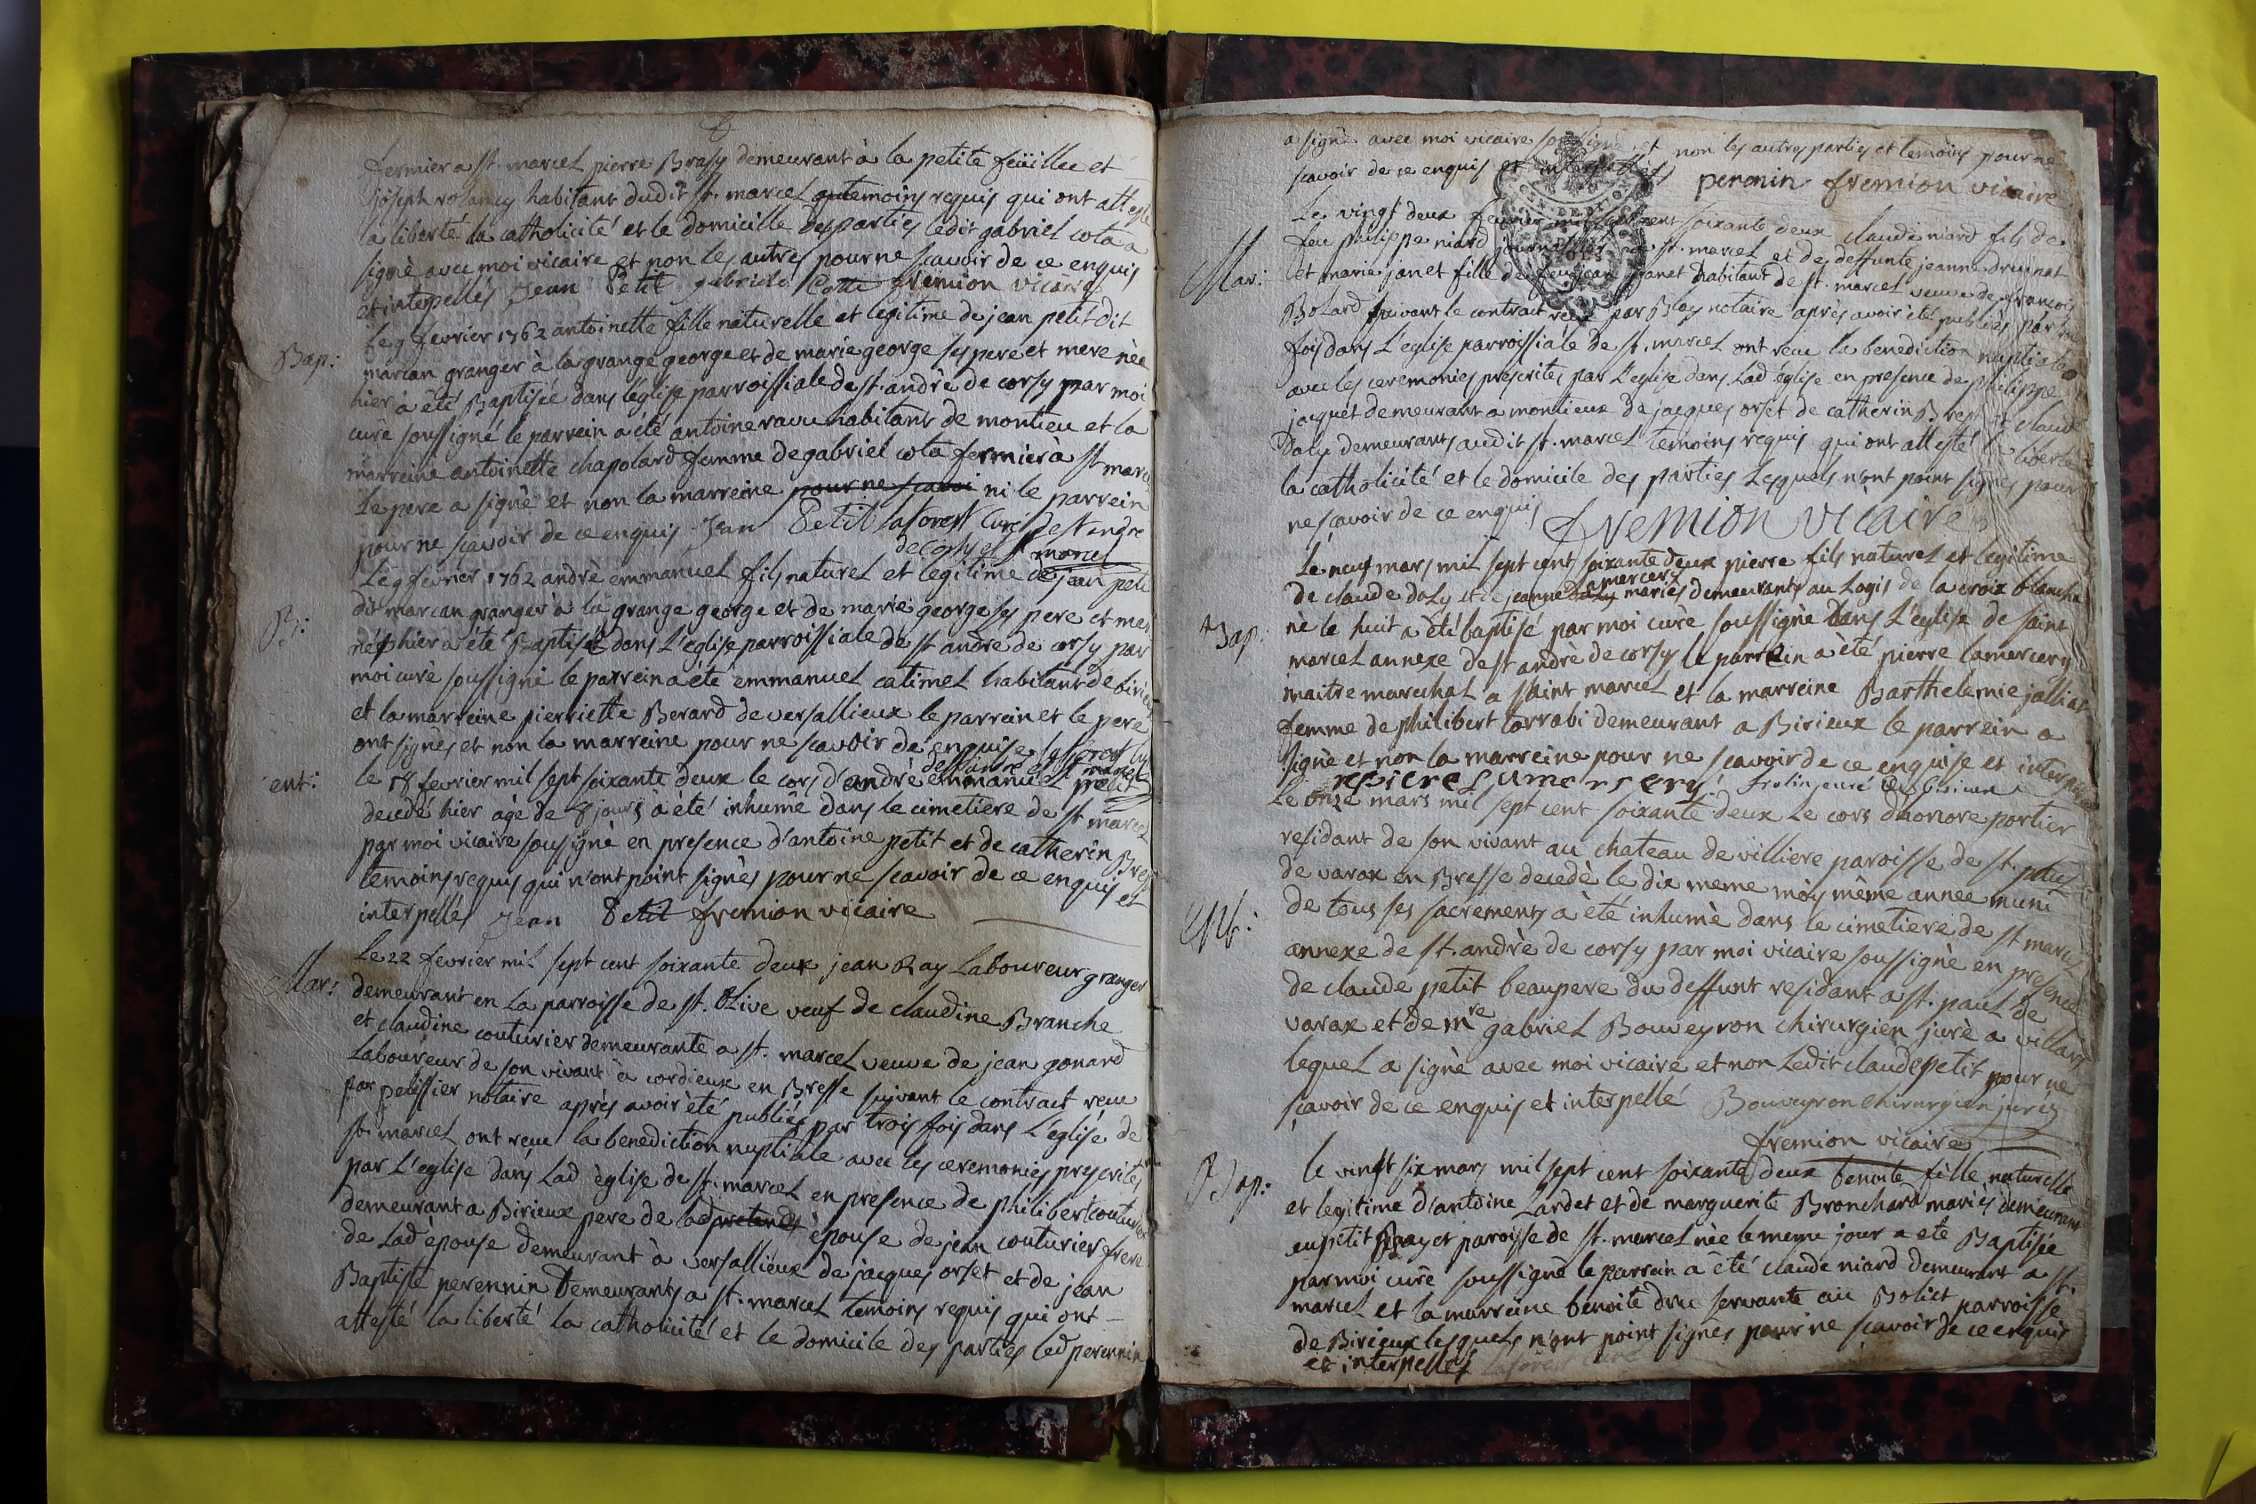 fermier a st. marcel pierre Brasy demeurant à la petite feüillee et
joseph rolancy habitant dudit st. marcel temoins requis qui ont attesté
la liberté la catholicité et le domicille des parties ledit gabriel cota a
signé avec moi vicaire et non les autres pour ne scavoir de ce enquis
et interpellés Jean Petit gabriel Cotta fremion vicaire
Bap:
le 9 fevrier 1762 antoinette fille naturelle et legitime de jean petit dit
marcan granger à la grange george et de marie george ses pere et mere née
hier à été Baptisée dans l'église parroissiale de st. andré de corsy par moi
curé soussigné le parrein a été antoine ravu habitant de montieu et la
marreine antoinette chapolard femme de gabriel cota fermier à st marcel
Le pere a signé et non la marreine pour ne scavoi ni le parrein
pour ne scavoir de ce enquis Jean Petit laforest Curé de st andre
de Corsy et st marcel
B:
Le 9 fevrier 1762 andré emmanuel fils naturel et legitime de jean petit
dit marcan granger à la grange george et de marie george ses pere et mere
né hier à été Baptisé dans L'eglise parroissiale de st andré de corsy par
moi curé soussigné le parrein a été emmanuel catimel habitant de birieux
et la marreine pierriette Berard de versallieux le parrein et le pere
ont signés et non la marreine pour ne scavoir de enquise laforest
de st andre et st marcel
ent:
le 18 fevrier mil sept soixante deux le cors d'andré emmanuel petit
decedé hier agé de 8 jours à été inhumé dans le cimetiere de st marcel
par moi vicaire sousigné en presence d'antoine petit et de catherin Brest
temoins requis qui n'ont point signés pour ne scavoir de ce enquis et
interpellés Jean Petit fremion vicaire
Mar:
Le 22 fevrier mil sept cent soixante deux jean Ray Laboureur granger
demeurant en la parroisse de st. Olive veuf de claudine Branche
et claudine couturier demeurante a st. marcel veuve de jean gonard
Laboureur de son vivant à cordieux en Bresse suivant le contract recu
par pelissier notaire après avoir été publiés par trois fois dans L'eglise de
st. marcel ont recu la benediction nuptiale avec les ceremonies prescrites
par L'eglise dans Lad église de st. marcel en presence de philibert couturier
demeurant a Birieux pere de lad pretendu épouse de jean couturier frere
de Lad épouse demeurant à versallieux de jacques orset et de jean
Baptiste perennin demeurants a st. marcel temoins requis qui ont
attesté la liberté la catholicité et le domicile des parties led perennin
a signé avec moi vicaire soussigné et non les autres parties et temoins pour ne
scavoir de ce enquis et interpellés peronin fremion vicaire
Mar:
Le vingt deux fevrier mil sept cent soixante deux claude niard fils de
feu philippe niard journallier a st. marcel et de deffunte jeanne druinat
et marie janet fille de feu jean janet habitant de st. marcel veuve de françois
Bolard suivant le contract recu par Blay notaire après avoir été publiés par trois
fois dans L'eglise parroissiale de st. marcel ont recu la benediction nuptiale
avec les ceremonies prescrites par L'eglise dans Lad église en presence de philippe
jacquet demeurant a montieux de jacques orset de catherin Brest et claude
Daly demeurants audit st. marcel temoins requis qui ont attesté la liberté
la catholicité et le domicile des parties Lesquels n'ont point signés pour
ne scavoir de ce enquis fremion vicaire
Bap:
Le neuf mars mil sept cent soixante deux pierre fils naturel et legitime
de claude daly et de jeanne lamercery mariés demeurants au Logis de la croix blanche
né le huit a été baptisé par moi curé soussigné dans L'église de saint
marcel annexe de st andré de corsy le parrein a été pierre lamercery
maitre marechal a saint marcel et la marreine Barthelemie jalliat
femme de philibert torrabi demeurant a Birieux le parrein a
signé et non la marreine pour ne scavoir de ce enquise et interpellée
Le onze mars mil sept cent soixante deux Le cors d'honore portier
residant de son vivant au chateau de villiere paroisse de st. paul
de varax en Bresse decedé le dix meme mois même année muni
Ent:
de tous ses sacrements a été inhumé dans le cimetiere de st marcel
annexe de st. andré de corsy par moi vicaire soussigné en presence
de claude petit beaupere du deffunt residant a st. paul de
varax et de mre gabriel Bouveyron chirurgien juré a villars
lequel a signé avec moi vicaire et non Ledit claude petit pour ne
scavoir de ce enquis et interpellé Bouveyron chirurgien juré
fremion vicaire
Bap:
le vingt six mars mil sept cent soixante deux benoite fille naturelle
et legitime d'antoine Lardet et de marguerite Bronchard mariés demeurant
au petit paroisse de st. marcel née le meme jour a eté Baptisée
par moi curé soussigné le parrein a été claude niard demeurant a st.
marcel et la marreine benoite druc servante au Boliet parroisse
de Birieux lesquels n'ont point signés pour ne scavoir de ce enquis
et interpellés